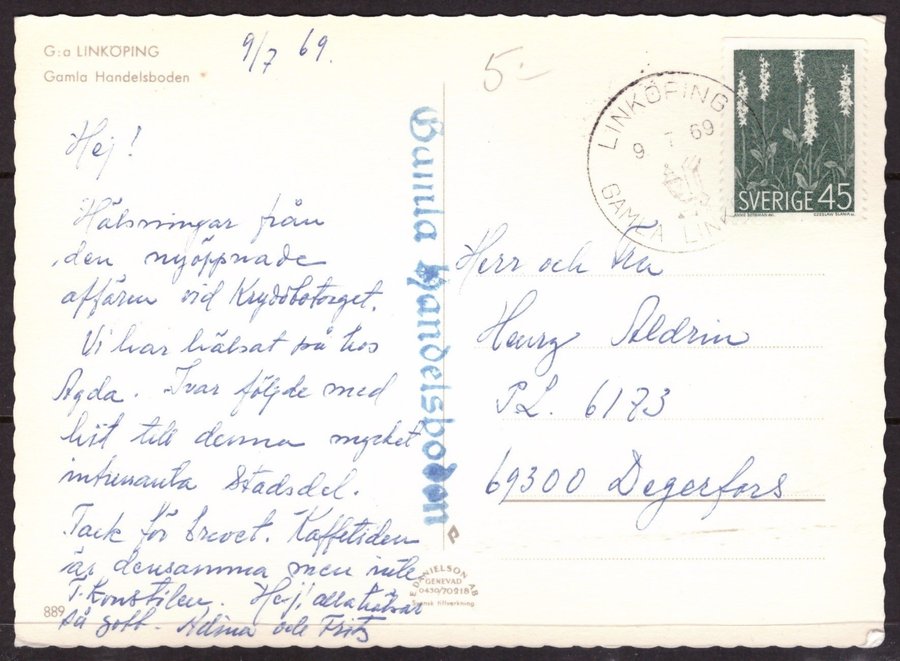 G:a LINKÖPING
Gamla Handelsboden
9/7 69.
Hej!
Hälsningar från
den nyöppnade
affären vid Kryddbotorget.
Vi har hälsat på hos
Agda. Ivar följde med
hit till denna mycket
intressanta Stadsdel.
Tack för brevet. Kaffetiden
är densamma men inte
Konstilen. Hej! alla hälsar
så gott. Adina och Fritz
889
Gamla Handelsboden
E DANIELSON AB
GENEVAD
0430/70218
Svensk tillverkning
5:-
LINKÖPING
9. 7 69
GAMLA LINK
SVERIGE 45
CZESLAW SLANIA sc.
Herr och Fru
Henry Aldrin
PL. 6173
69300 Degerfors